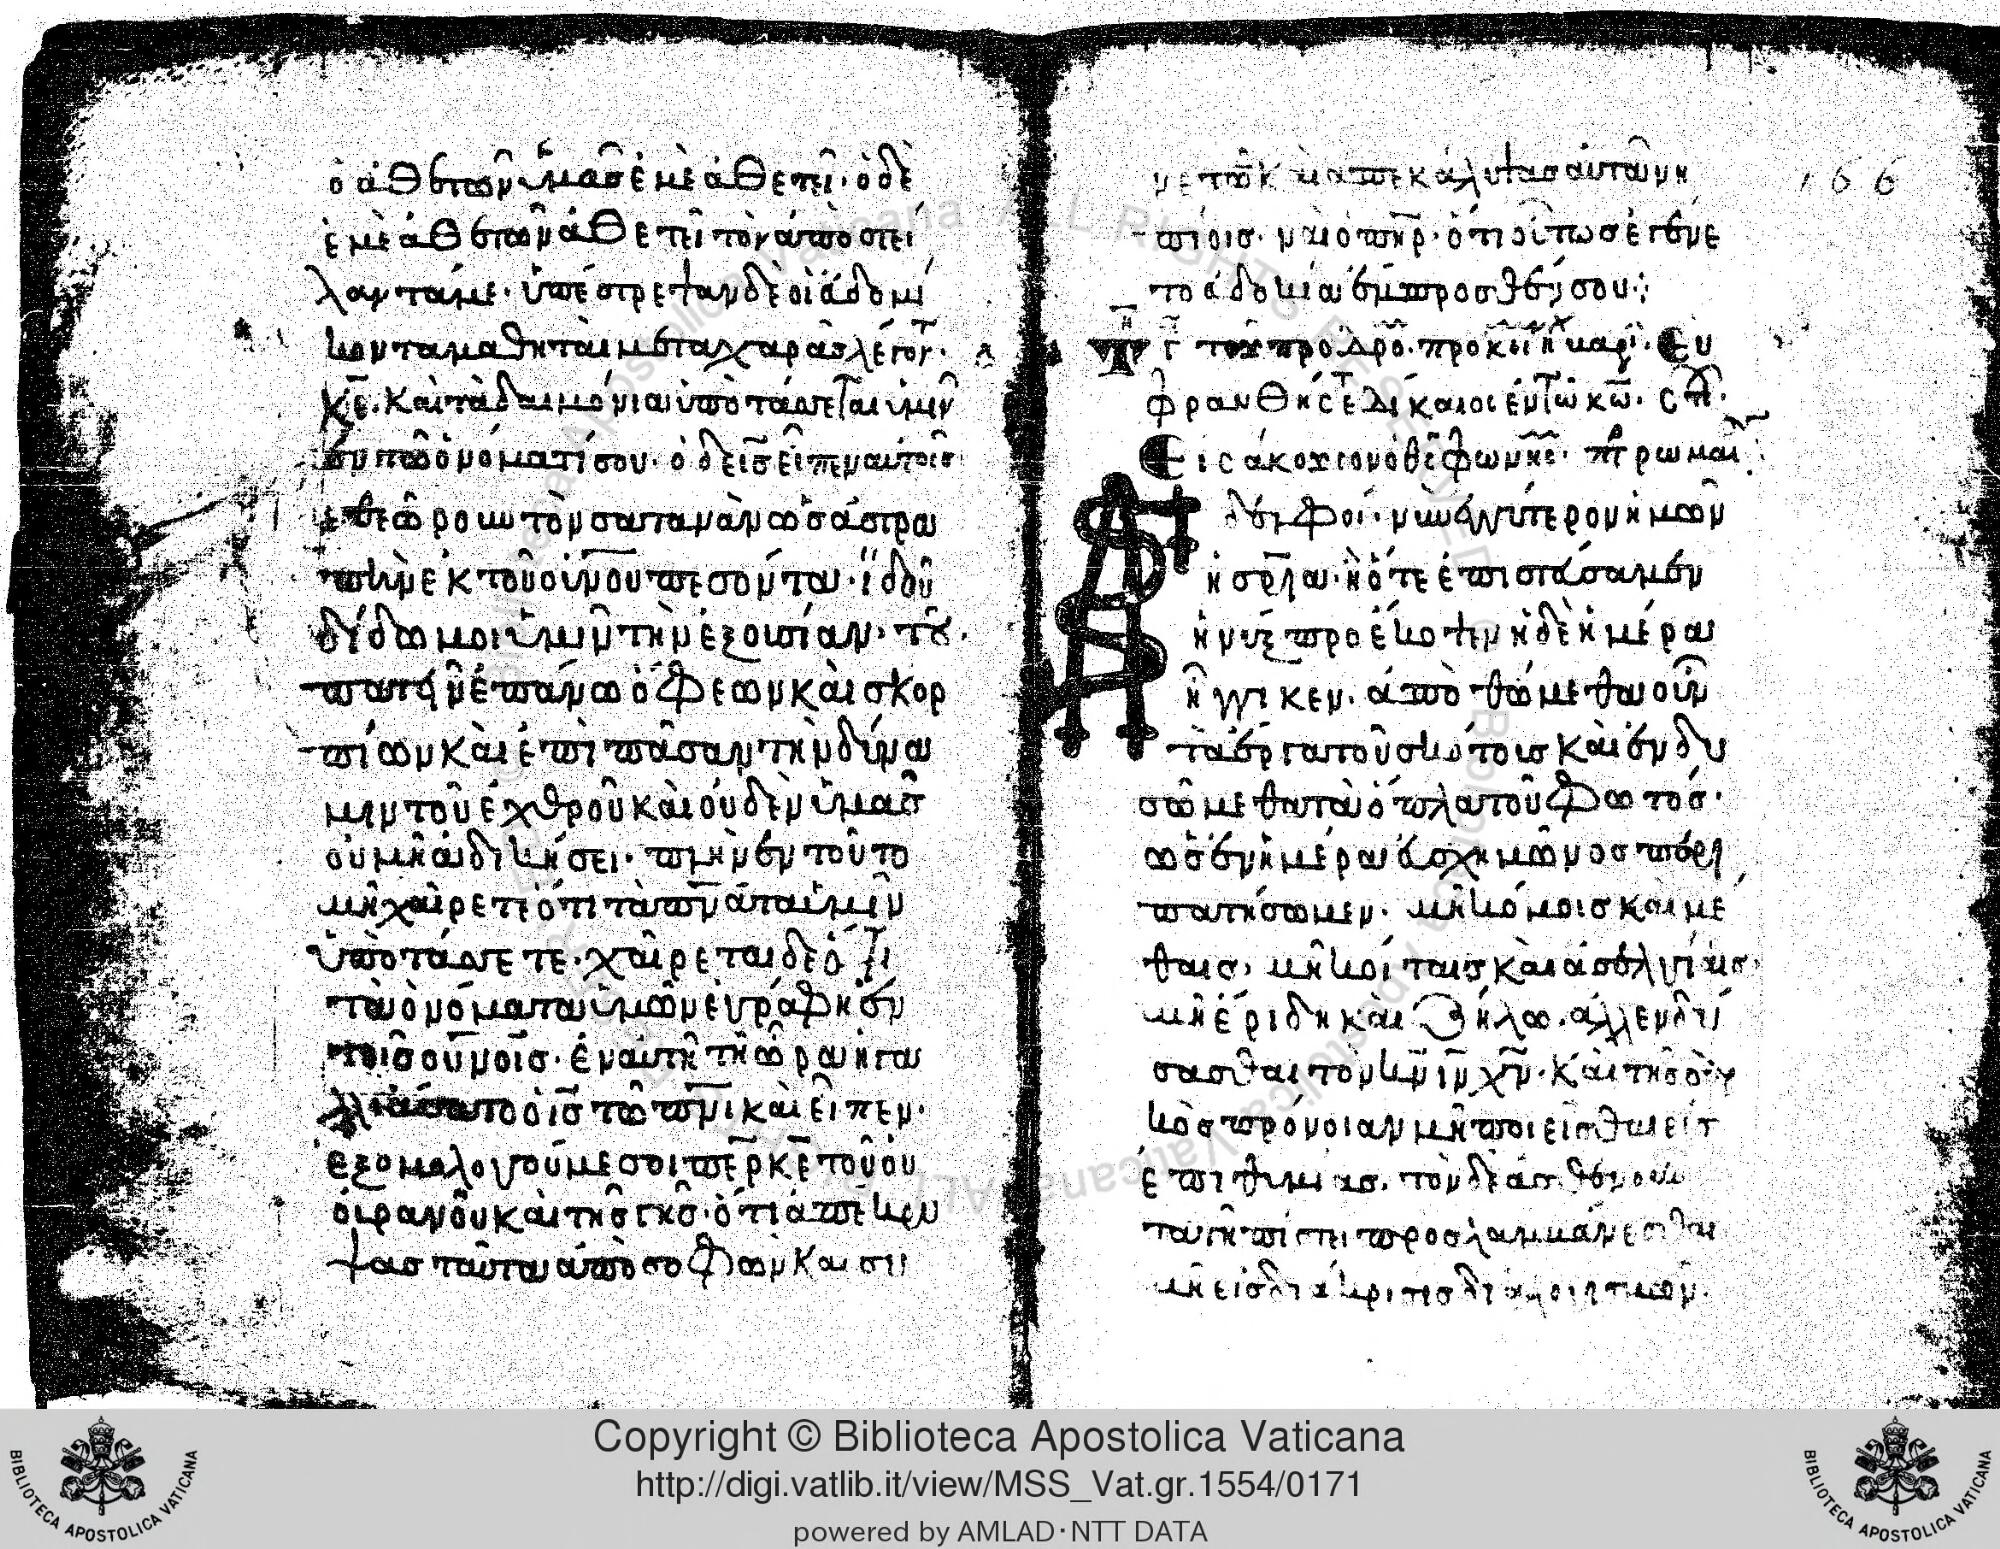 ὁ ἀθετῶν ὑμᾶσ ἐμὲ ἀθετεῖ· ὁ δὲ
ἐμὲ ἀθετῶν ἀθετεῖ τὸν ἀποστεί
λαντά με· ὑπέστρεψαν δὲ οἱ ἑβδομί
κοντα μαθηταὶ μετα χαρᾶσ λέγοντ·
κ̅ε̅· καὶ τὰ δαιμόνια ὑπὸτάσσεται ὑμῖν
ἐν τῶ ὀνόματί σου· ὁ δε ι̅σ̅ εἶπεν αὐτοῖσ
ἐθεώρουν τὸν σατανᾶν ὡσ ἀστρα
πὴν ἐκ τοῦ οὐ̅νου πεσόντα· ἰδοὺ
δίδωμοι ὑμῖν τὴν ἐξουσίαν· τοῦ
πατεῖν ἐπάνω ὄφεων καὶ σκορ
πίων καὶ ἐπὶ πᾶσαν τὴν δύνα
μιν τοῦ ἐχθροῦ καὶ οὐδὲν ὑμᾶσ
οὐ μὴ ἀδικήσει· πλὴν ἐν τοῦτο
μὴ χαίρετε ὅτι τὰ π̅ν̅ά̅τα ὑμῖν
ὑπὸτάσσετε· χαίρεται δὲ ὅτι
τὰ ὀνόματα ὑμῶν ἐγράφη ἐν
τοῖσ οὐ̅νοῖσ· ἐν αὐτῆ τῆ ὥρα ἠγα
λλιάσατο ὁ ι̅σ̅ τῶ π̅ν̅ι̅ καὶ εἶπεν·
ἐξομολογοῦμε σοι π̅ε̅ρ̅ κ̅ε̅ τοῦ οὐ
οὐρανοῦ καὶ τῆσ γῆσ· ὅτι ἀπέκρυ
ψασ ταῦτα ἀπὸ σοφῶν καὶ συ
νετῶν καὶ ἀπεκάλυψασ αὐτὰ νη
πίοισ· ναὶ ὁ π̅η̅ρ̅· ὅτι οὕτωσ ἐγένε
το εὐδοκία ἔμπροσθέν σου·:
166
Εὐ
φρανθήσετε δίκαιος ἐν τῶ κ̅ω̅· στ·
Εἰσάκουσον ὁ θ̅ς̅ φωνῆς·
Ἀδελφοί· νῦν ἐγγύτερον ἡμῶν
ἡ σ̅ρ̅ία· ἢ ὅτε ἐπιστεύσαμεν
ἡ νὺξ προέκοψεν ἡ δὲ ἡμέρα
ἤγγικεν. ἀποθώμεθα οὖν
τὰ ἔργα τοῦ σκότουσ καὶ ἐνδυ
σώμεθα τὰ ὅπλα τοῦ φωτόσ·
ὡσ ἐν ἡμέρα εὐσχημῶνοσ περι
πατήσωμεν· μὴ κόμοισ καὶ μέ
θαισ· μὴ κοίταισ καὶ ἀσελγείαισ·
μὴ ἔριδη καὶ ζήλω. ἀλλ ἐνδύ
σασθαι τὸν κ̅ν̅ ι̅ν̅ χ̅ν̅· καὶ τῆσ σαρ
κὸσ πρόνοιαν μὴ ποιεῖσθαι εἰσ
ἐπιθυμίασ. τὸν δὲ ἀσθένουν
τα τῆ πίστει προσλαμβάνεσθαι
μὴ εἰσ διάκρισισ διαλογισμῶν·
Copyright © Biblioteca Apostolica Vaticana
http://digi.vatlib.it/view/MSS_Vat.gr.1554/0171
powered by AMLAD·NTT DATA
BIBLIOTECA APOSTOLICA VATICANA
BIBLIOTECA APOSTOLICA VATICANA